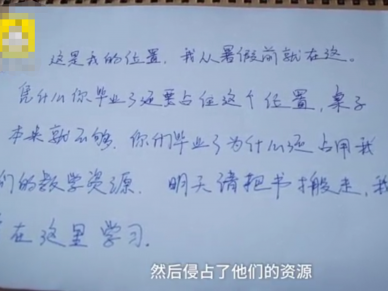 这是我的位置，我从暑假前就在这。
凭什么你毕业了还要占住这个位置，桌子
本来就不够，你们毕业了为什么还占用我
们的教学资源，明天请把书搬走，我
在这里学习.
然后侵占了他们的资源